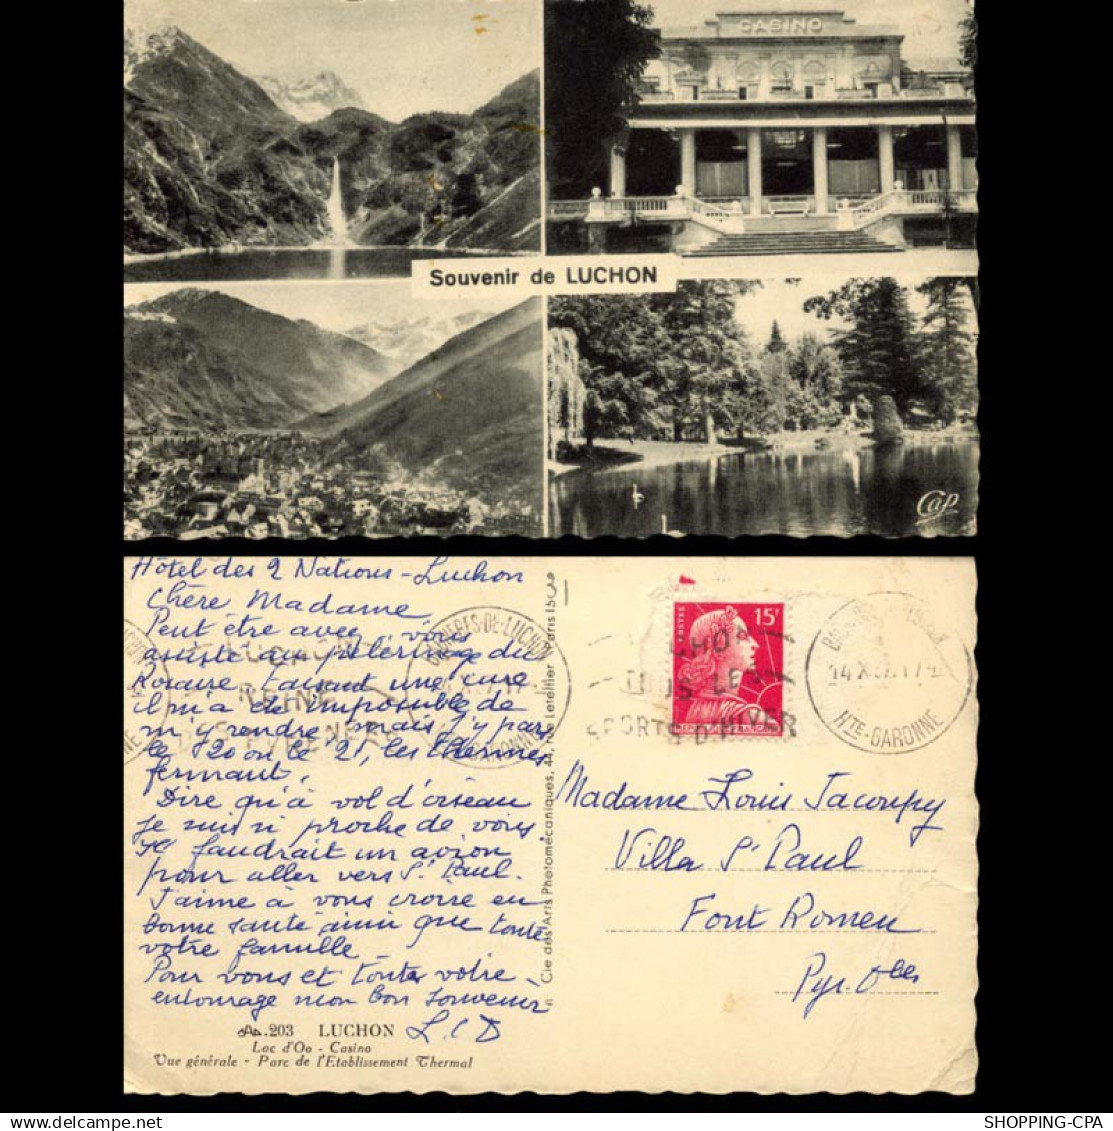 CASINO
Souvenir de LUCHON
Cap
Hôtel des 2 Nations - Luchon
Chère Madame
Peut être avez vous
assisté au pélérinage du
Rosaire, faisant une cure
il m'a été impossible de
m'y rendre mais j'y pars
le 20 ou le 21, les thermes
fermant.
Dire qu'à vol d'oiseau
je suis si proche de vous
Il faudrait un avion
pour aller vers St Paul.
J'aime à vous croire en
bonne santé ainsi que toute
votre famille
Pour vous et toute votre
entourage mon bon souvenir
L.C.D
203 LUCHON
Lac d'Oo - Casino
Vue générale - Parc de l'Etablissement Thermal
Cie des Arts Photomécaniques, 44, rue Letellier - Paris 15
LUCHON
REINE
DES PYRENEES
BAGNERES-DE-LUCHON
HTE-GARONNE
LUCHON
TOUS LES
SPORTS D'HIVER
POSTES
15F
Madame Louis Jacoupy
Villa St Paul
Font Romeu
Pyr. Oles
SHOPPING-CPA